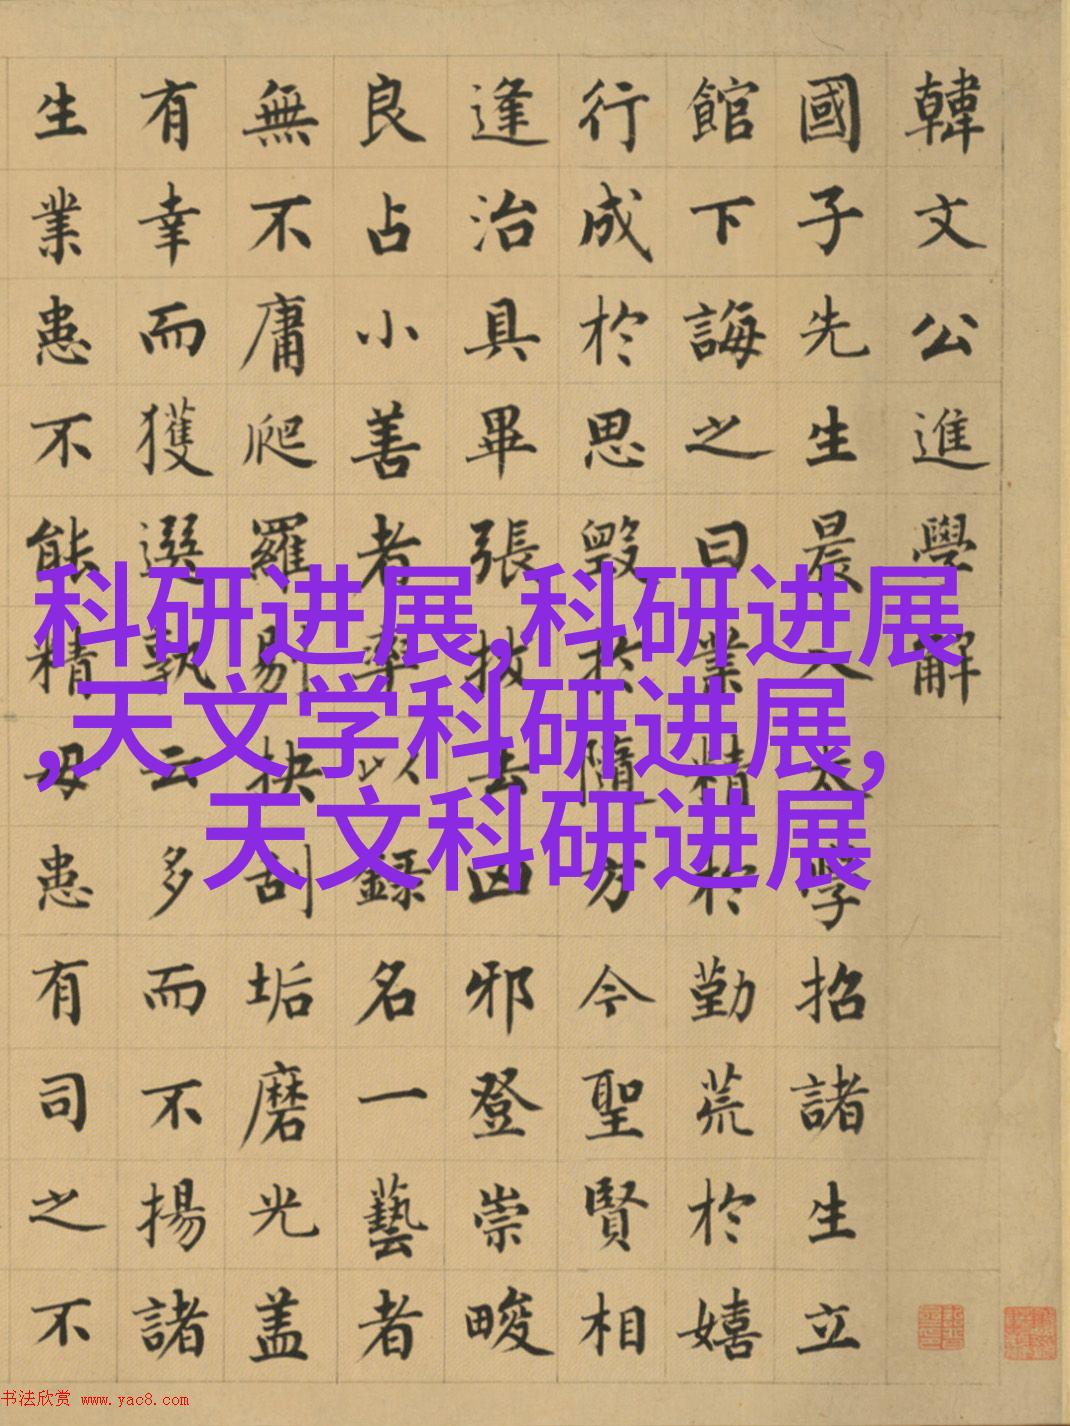 韓文公進學解
國子先生晨入太學招諸生立
館下誨之曰業精於勤荒於嬉
行成於思毀於隨方今聖賢相
逢治具畢張拔去凶邪登崇畯
良占小善者率以錄名一藝者
無不庸爬羅剔抉刮垢磨光盖
有幸而獲選孰云多而不揚諸
生業患不能精毋患有司之不
科研进展,科研进展
,天文学科研进展,
天文科研进展
书法欣赏 www.yac8.com